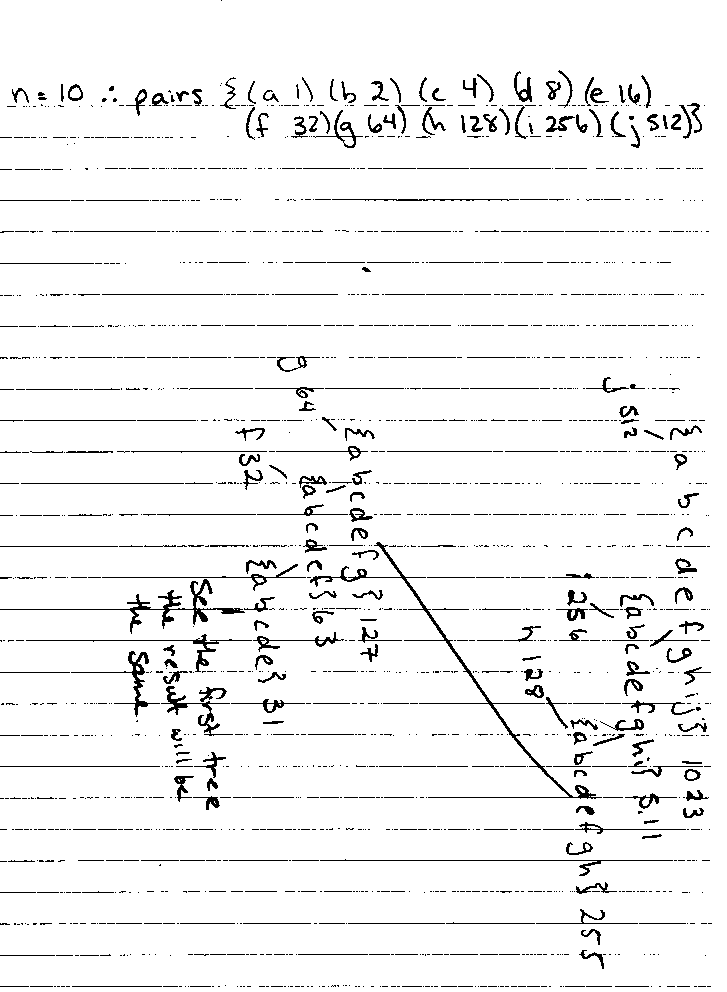 n = 10 ∴ pairs {(a 1) (b 2) (c 4) (d 8) (e 16)
(f 32)(g 64) (h 128)(i 256) (j 512)}
{a b c d e f g h i j} 1023
j 512
{abcdefghi} 511
i 256
{abcdefgh} 255
h 128
{abcdefg} 127
g 64
{abcdef} 63
f 32
{abcde} 31
See the first tree
the result will be
the same